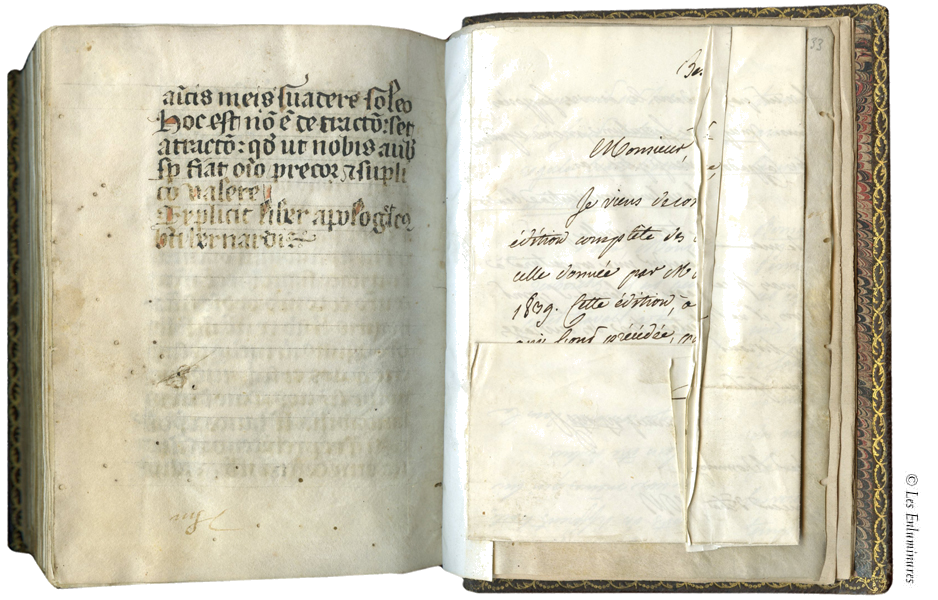 aūcis meis suadere soleo
Hoc est nō ē detractō: set
atractō: qđ ut nobis a uob
sp fiat oīo precor ⁊ supli
co valete
Explicit liber apologeticꝰ
bti bernardi
33
Monsieur,
Je viens de con
édition complète des
celle donnée par M
1839. Cette édition, a
qui l'ont précédée,
© Les Enluminures